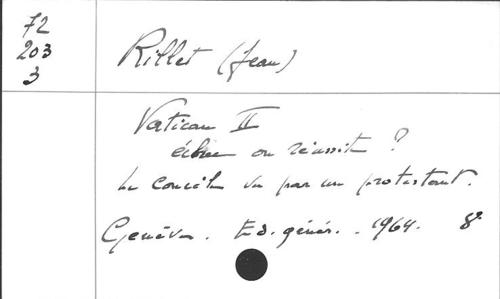 72
203
3
Rillet (Jean)
Vatican II
échec ou réussite ?
Le concile vu par un protestant.
Genève. Ed. génér. . 1964. 8°